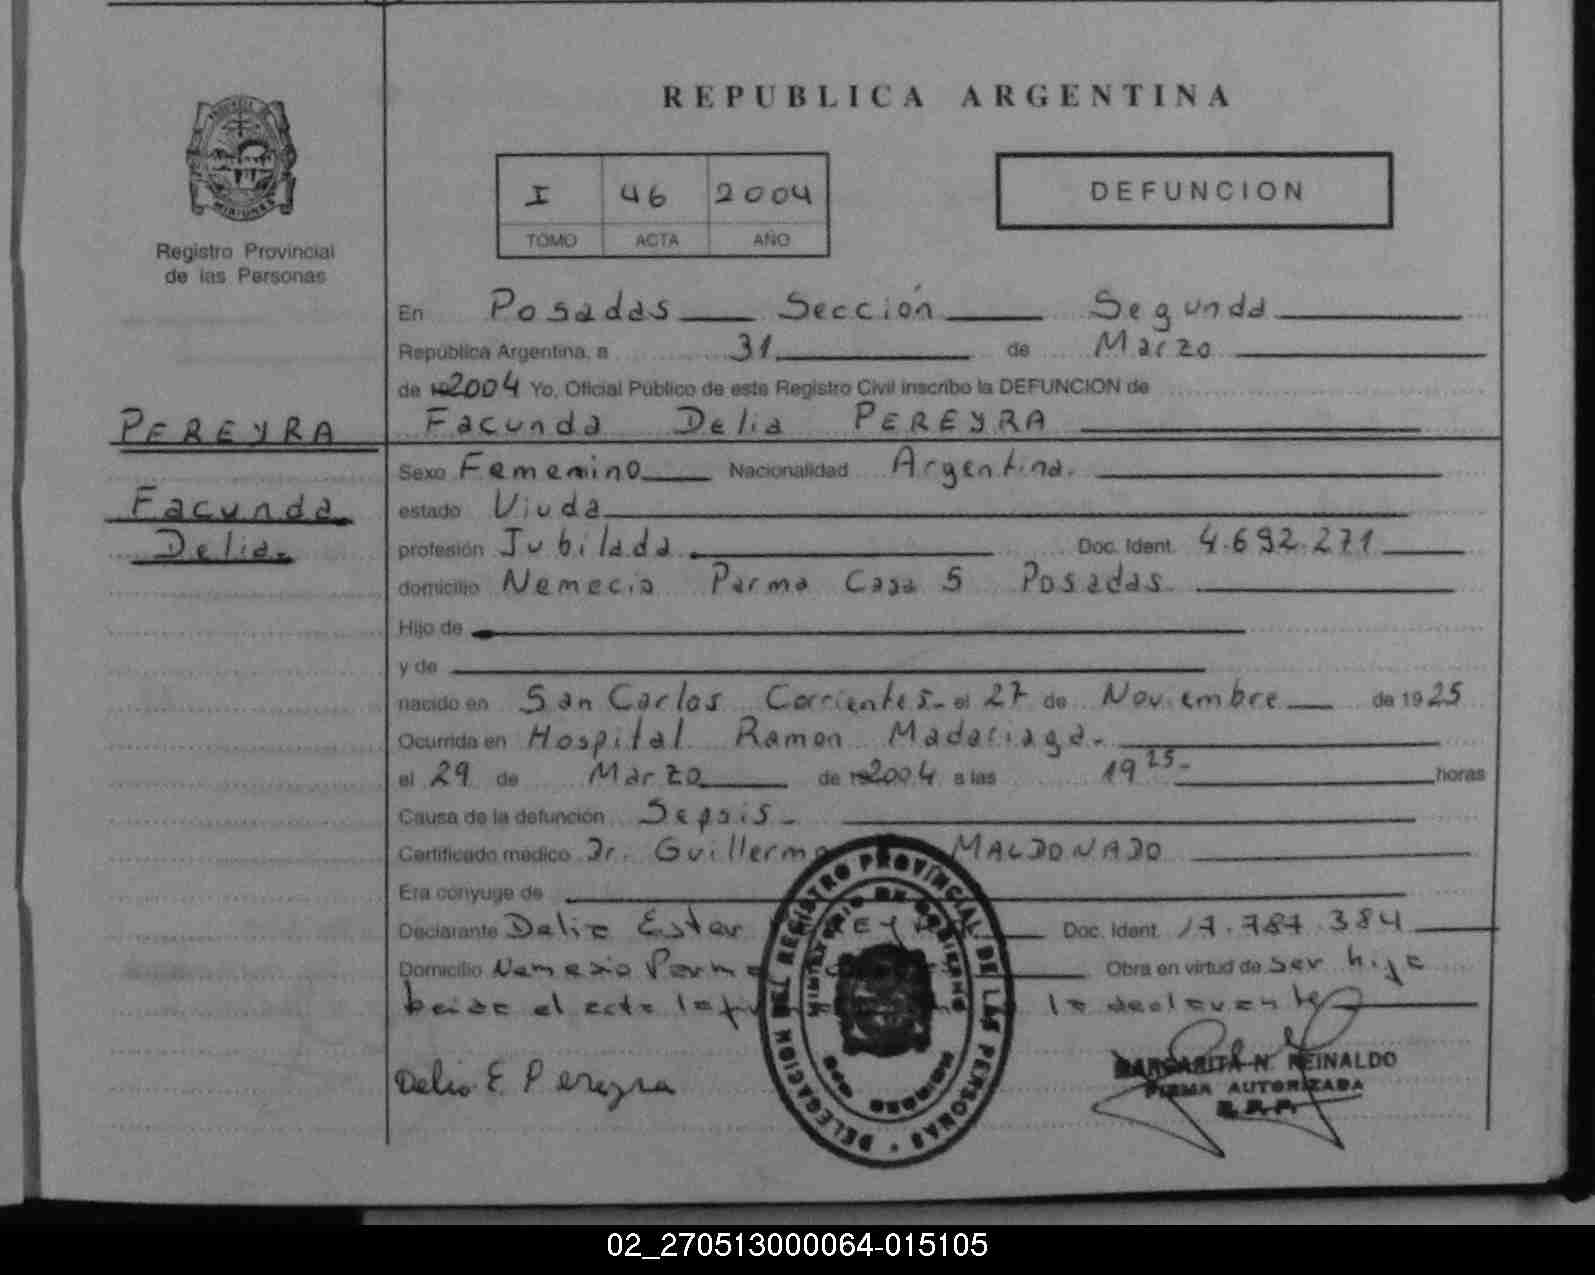 REPUBLICA ARGENTINA
I 46 2004
TOMO ACTA AÑO
DEFUNCION
Registro Provincial
de las Personas
En Posadas Sección Segunda
República Argentina, a 31 de Marzo
de 2004 Yo, Oficial Público de este Registro Civil inscribo la DEFUNCION de
PEREYRA
Facunda Delia PEREYRA
Facunda
Delia.
Sexo Femenino Nacionalidad Argentina.
estado Viuda
profesión Jubilada Doc. Ident. 4.692.271
domicilio Nemecio Parma Casa 5 Posadas.
Hijo de
y de
nacido en San Carlos Corrientes- el 27 de Noviembre de 1925
Ocurrida en Hospital Ramon Madariaga-
el 29 de Marzo de 2004 a las 19 25- horas
Causa de la defunción Sepsis-
Certificado médico Dr. Guillermo MALDONADO
Era cónyuge de
Declarante Delia Ester Doc. Ident. 17.787.384
Domicilio Nemesio Parma Obra en virtud de ser hija
el acta la declarante
Delia E. Pereyra
DELEGACION DEL REGISTRO PROVINCIAL DE LAS PERSONAS
MINISTERIO DE GOBIERNO
MARGARITA N. REINALDO
FIRMA AUTORIZADA
R.P.P.
02_270513000064-015105